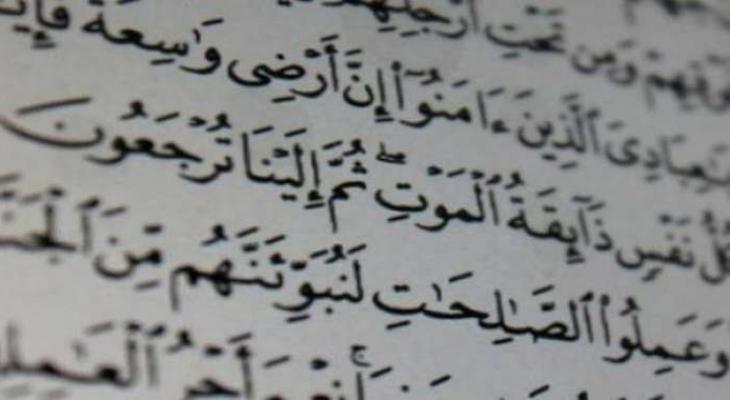 وْقِهِمْ وَمِن تَحْتِ أَرْجُلِهِمْ
يَٰعِبَادِىَ ٱلَّذِينَ ءَامَنُوٓا۟ إِنَّ أَرْضِى وَٰسِعَةٌ فَإِيَّ
كُلُّ نَفْسٍ ذَآئِقَةُ ٱلْمَوْتِ ۖ ثُمَّ إِلَيْنَا تُرْجَعُونَ
وَعَمِلُوا۟ ٱلصَّٰلِحَٰتِ لَنُبَوِّئَنَّهُم مِّنَ ٱلْجَنَّ
نِعْمَ أَجْرُ ٱلْعَٰمِلِ